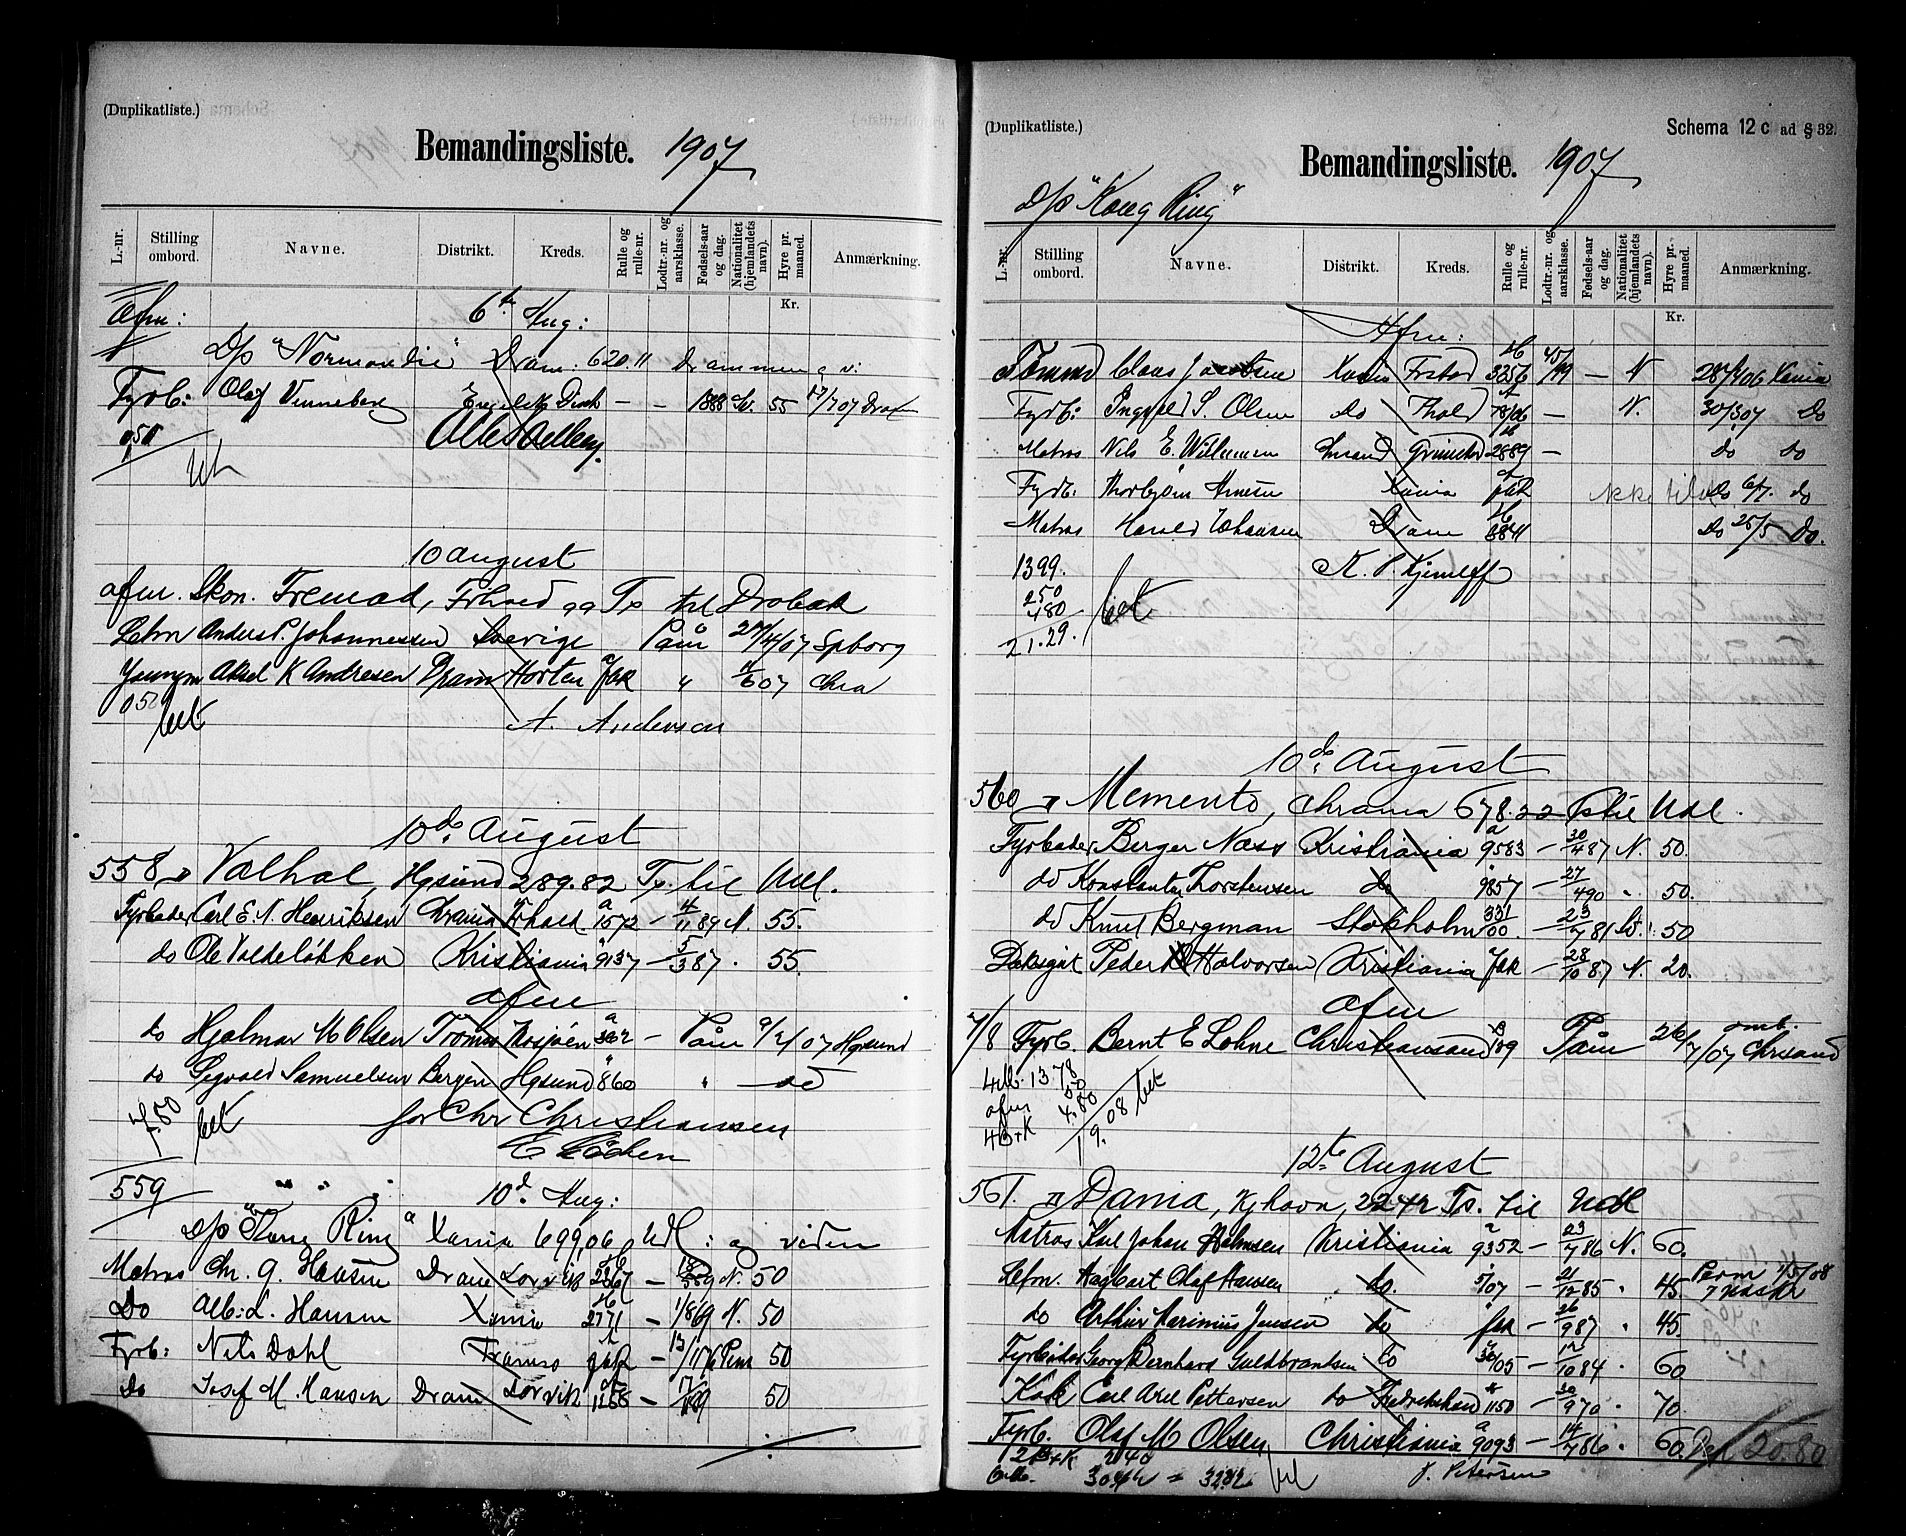 (Duplikatliste.)
Bemandingsliste. 1907
L.-nr. Stilling ombord. Navne. Distrikt. Kreds. Rulle og rulle-nr. Lodtr.-nr. og aarsklasse. Fødsels-aar og dag. Nationalitet (hjemlandets navn). Hyre pr. maaned. Anmærkning.
Kr.
Afm: 6te Aug:
D/s "Normandie" Dram: 620.11 Drammen
Fyrb: Olaf Vinneberg - - 1888 55
10 August
afm. Skon. Fremad, Frhald 99 Ts til Drøbak
Letm Anders P. Johannessen Sverige Paam 27/4/07 Spborg
Jungm Aksel K Andresen Dram Horten Jak " 07 Chra
052 bet A. Anderson
10de August
558 D Valhal, Hgsund 289.82 Ts. til Udl.
Fyrbøder Carl E. N. Henriksen Drania Frhald a 1572 - 4/11 89 N. 55.
do Ole Valdeløkken Kristiania a 9137 - 5/3 87 . 55.
afm
do Hjalmar M Olsen Tromsø Mosjøen a 362 - Paam 9/2/07 Hgsund
do Sigvald Samuelsen Bergen Hgsund a 860 " do
4.50 bet for Chr Christiansen
559 " " " 10d. Aug:
D/s "Kong Ring" Xania 699,06 Udl: og viden
Matros Chr. G. Hansen Dram Larvik 2267 - N. 50
Do Alb: L. Hansen Xania 2771 - 1/8 69 N. 50
Fyrb: Nils Dahl Tromsø Jak - 50
Do Josef M. Hansen Dram Larvik 1158 - 50
(Duplikatliste.) Schema 12 c ad § 32.
Bemandingsliste. 1907
D/s "Kong Ring"
L.-nr. Stilling ombord. Navne. Distrikt. Kreds. Rulle og rulle-nr. Lodtr.-nr. og aarsklasse. Fødsels-aar og dag. Nationalitet (hjemlandets navn). Hyre pr. maaned. Anmærkning.
Kr.
Afm:
Tømmd Claus Xania Frstad 3256 45/99 - N Xania
Fyrb: Ingvald S. Olsen do Fhald 78/06 - N. 30/3 07 Do
Matros Nils E. Willumsen Grimstad 2889 - Do do
Fyrb: Thorbjørn Arnesen Xania Jak ikke Do 6/7. do
Matros Harald Johansen Dram 3841 Do 25/5 Do.
1399.
250
480
21.29. bet
10de August
560 D Memento, Chrania 678.22 Ts til Udl.
Fyrbøder Berger Næss Kristiania a 9583 - 30/4 87 N. 50.
do Konstantin Thorstensen do a 9857 - 27/4 90 " 50.
do Knut Bergman Stokholm 331/00. - 23/7 81 Sv. 50
Dæksgut Peder Halvorsen Kristiania Jak - 28/10 87 N. 20.
afm
7/8 Fyrb. Bernt E Lohne Christiansand 109 Paam 26/7/07 omb. Chrsand
1378
50
afm 4.80
19.08 bet
12te August
561. D Dania, Kjhavn, 2242 Ts. til Udl
Matros Karl Johan Holmsen Kristiania a 9352 - 23/7 86 N. 60.
Letm. Hagbart Olaf Hansen do. 5/07 - 21/12 85 " 45. Perm 1/5/08
do Arthur Marinius Jensen do Jak - 26/9 87 " 45.
Fyrbøder Georg Bernhard Guldbrandsen do 36/05 - 12/10 84 " 60
Kok Carl Axel Pettersen do Fredrikshald 1150 - 30/9 70 . 70.
Fyrb. Olaf M Olsen Christiania a 9093 - 14/7 86 . 60. 20.80
240
3042 = 3282 bet J. Petersen